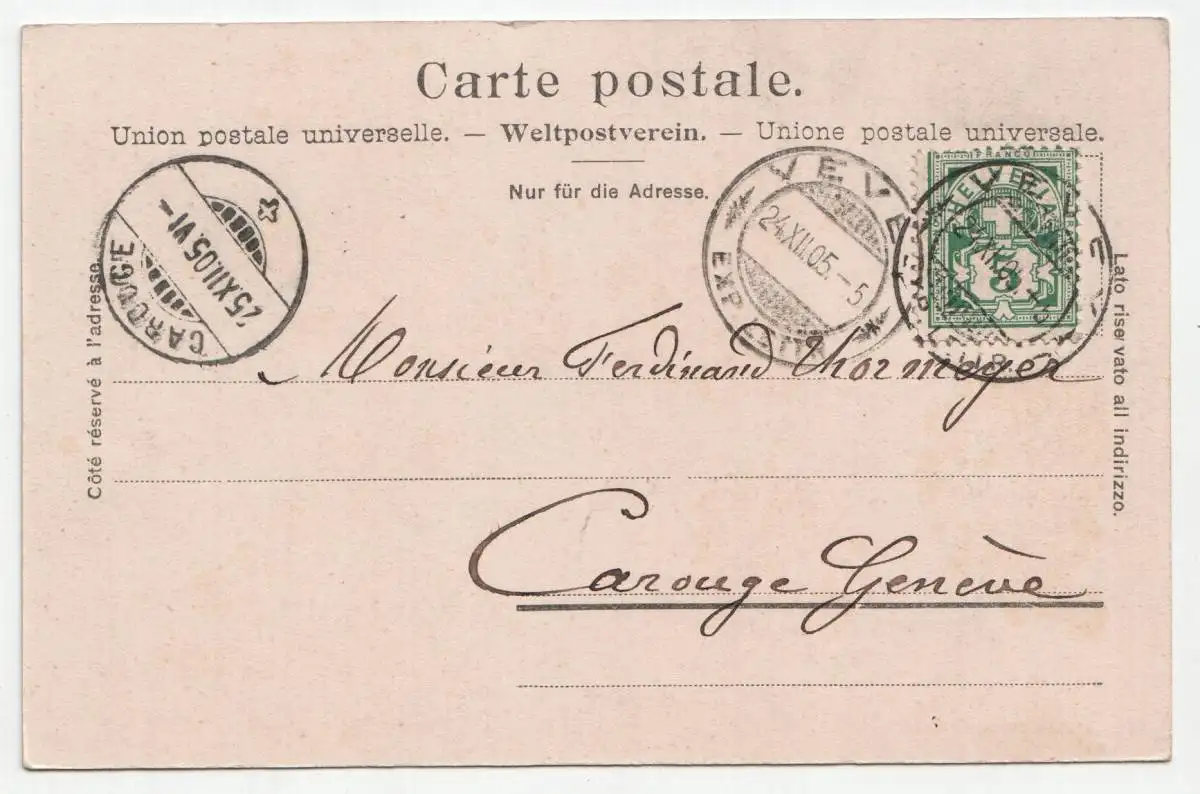 Carte postale.
Union postale universelle. — Weltpostverein. — Unione postale universale.
Nur für die Adresse.
Côté réservé à l'adresse.
Lato riservato all indirizzo.
CAROUGE
25.XII.05.VI–
VEVEY
24.XII.05.–5
EXP. LETTR.
FRANCO
HELVETIA
5
VEVEY
Monsieur Ferdinand Thormeyer
Carouge Genève